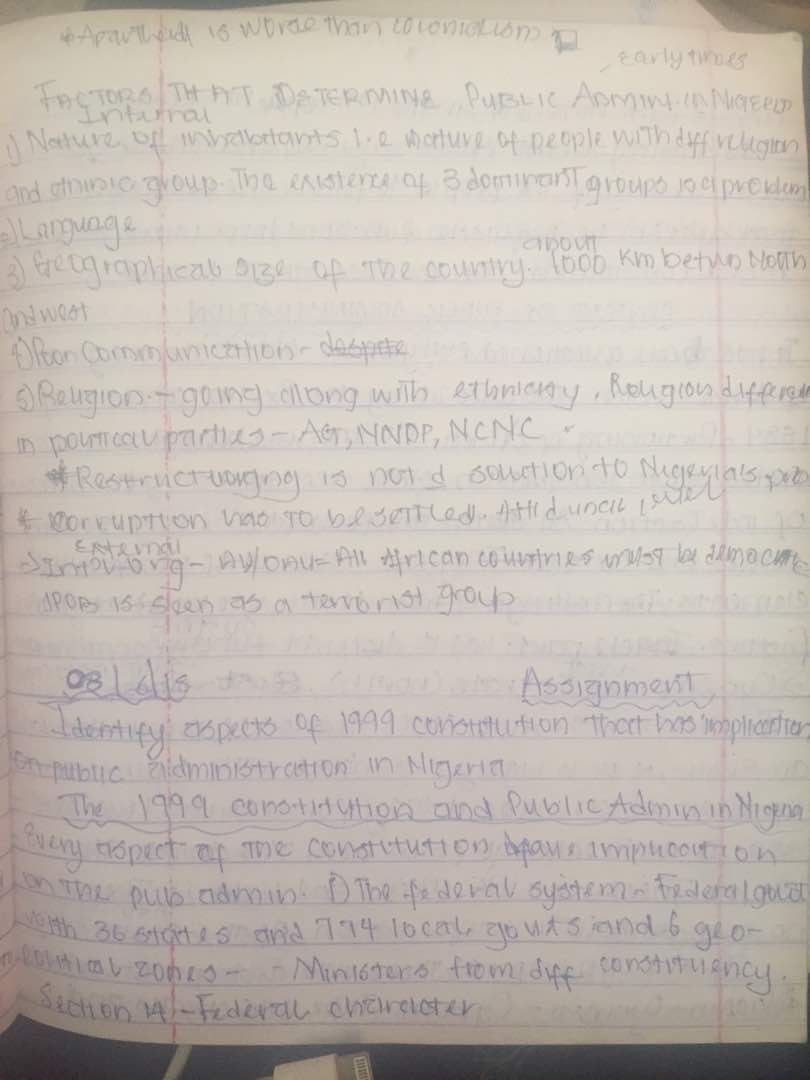 *Apartheid is worse than colonialism
early times
FACTORS THAT DETERMINE PUBLIC ADMIN. IN NIGERIA
Internal
1) Nature of inhabitants i.e nature of people with diff religion
and ethnic group. The existence of 3 dominant groups is a problem
2) Language
3) Geographical size of the country. about 1000 km betwn North
and west
4) Poor communication - despite
5) Religion - going along with ethnicity, Religion different
in political parties - AG, NNDP, NCNC
* Restructuring is not a solution to Nigeria's prob
* corruption has to be settled. Attid uncil level
External
- AU/OAU = All African countries must be democratic
IPOB is seen as a terrorist group
08/6/18 Assignment
Identify aspects of 1999 constitution that has implication
on public administration in Nigeria
The 1999 constitution and Public Admin in Nigeria
Every aspect of the constitution have implication
on the pub admin. 1) The federal system - Federal govt
with 36 states and 774 local govts and 6 geo-
political zones - Ministers from diff constituency.
Section 14 - Federal character